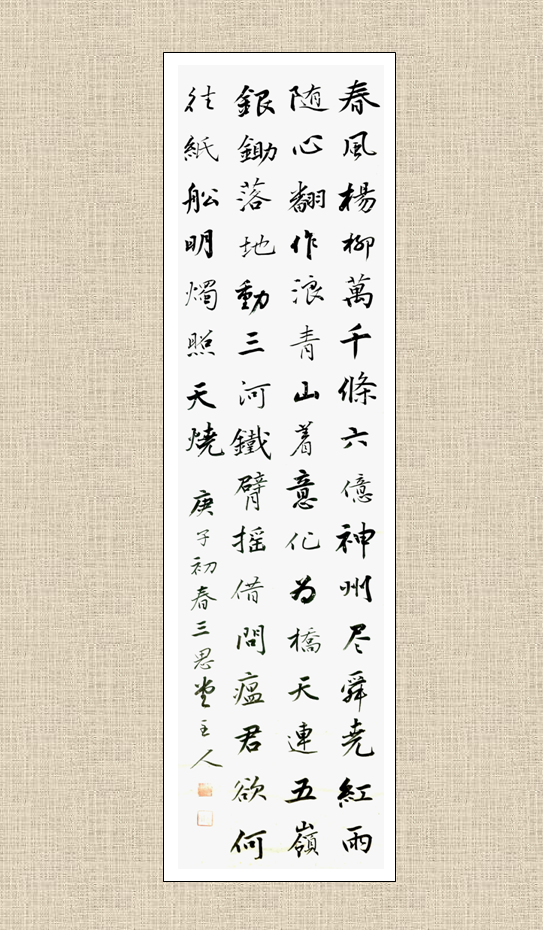 春風楊柳萬千條六億神州尽舜尭紅雨
随心翻作浪青山着意化为橋天連五嶺
銀鋤落地動三河鐵臂摇借問瘟君欲何
往紙船明燭照天燒
庚子初春三思堂主人